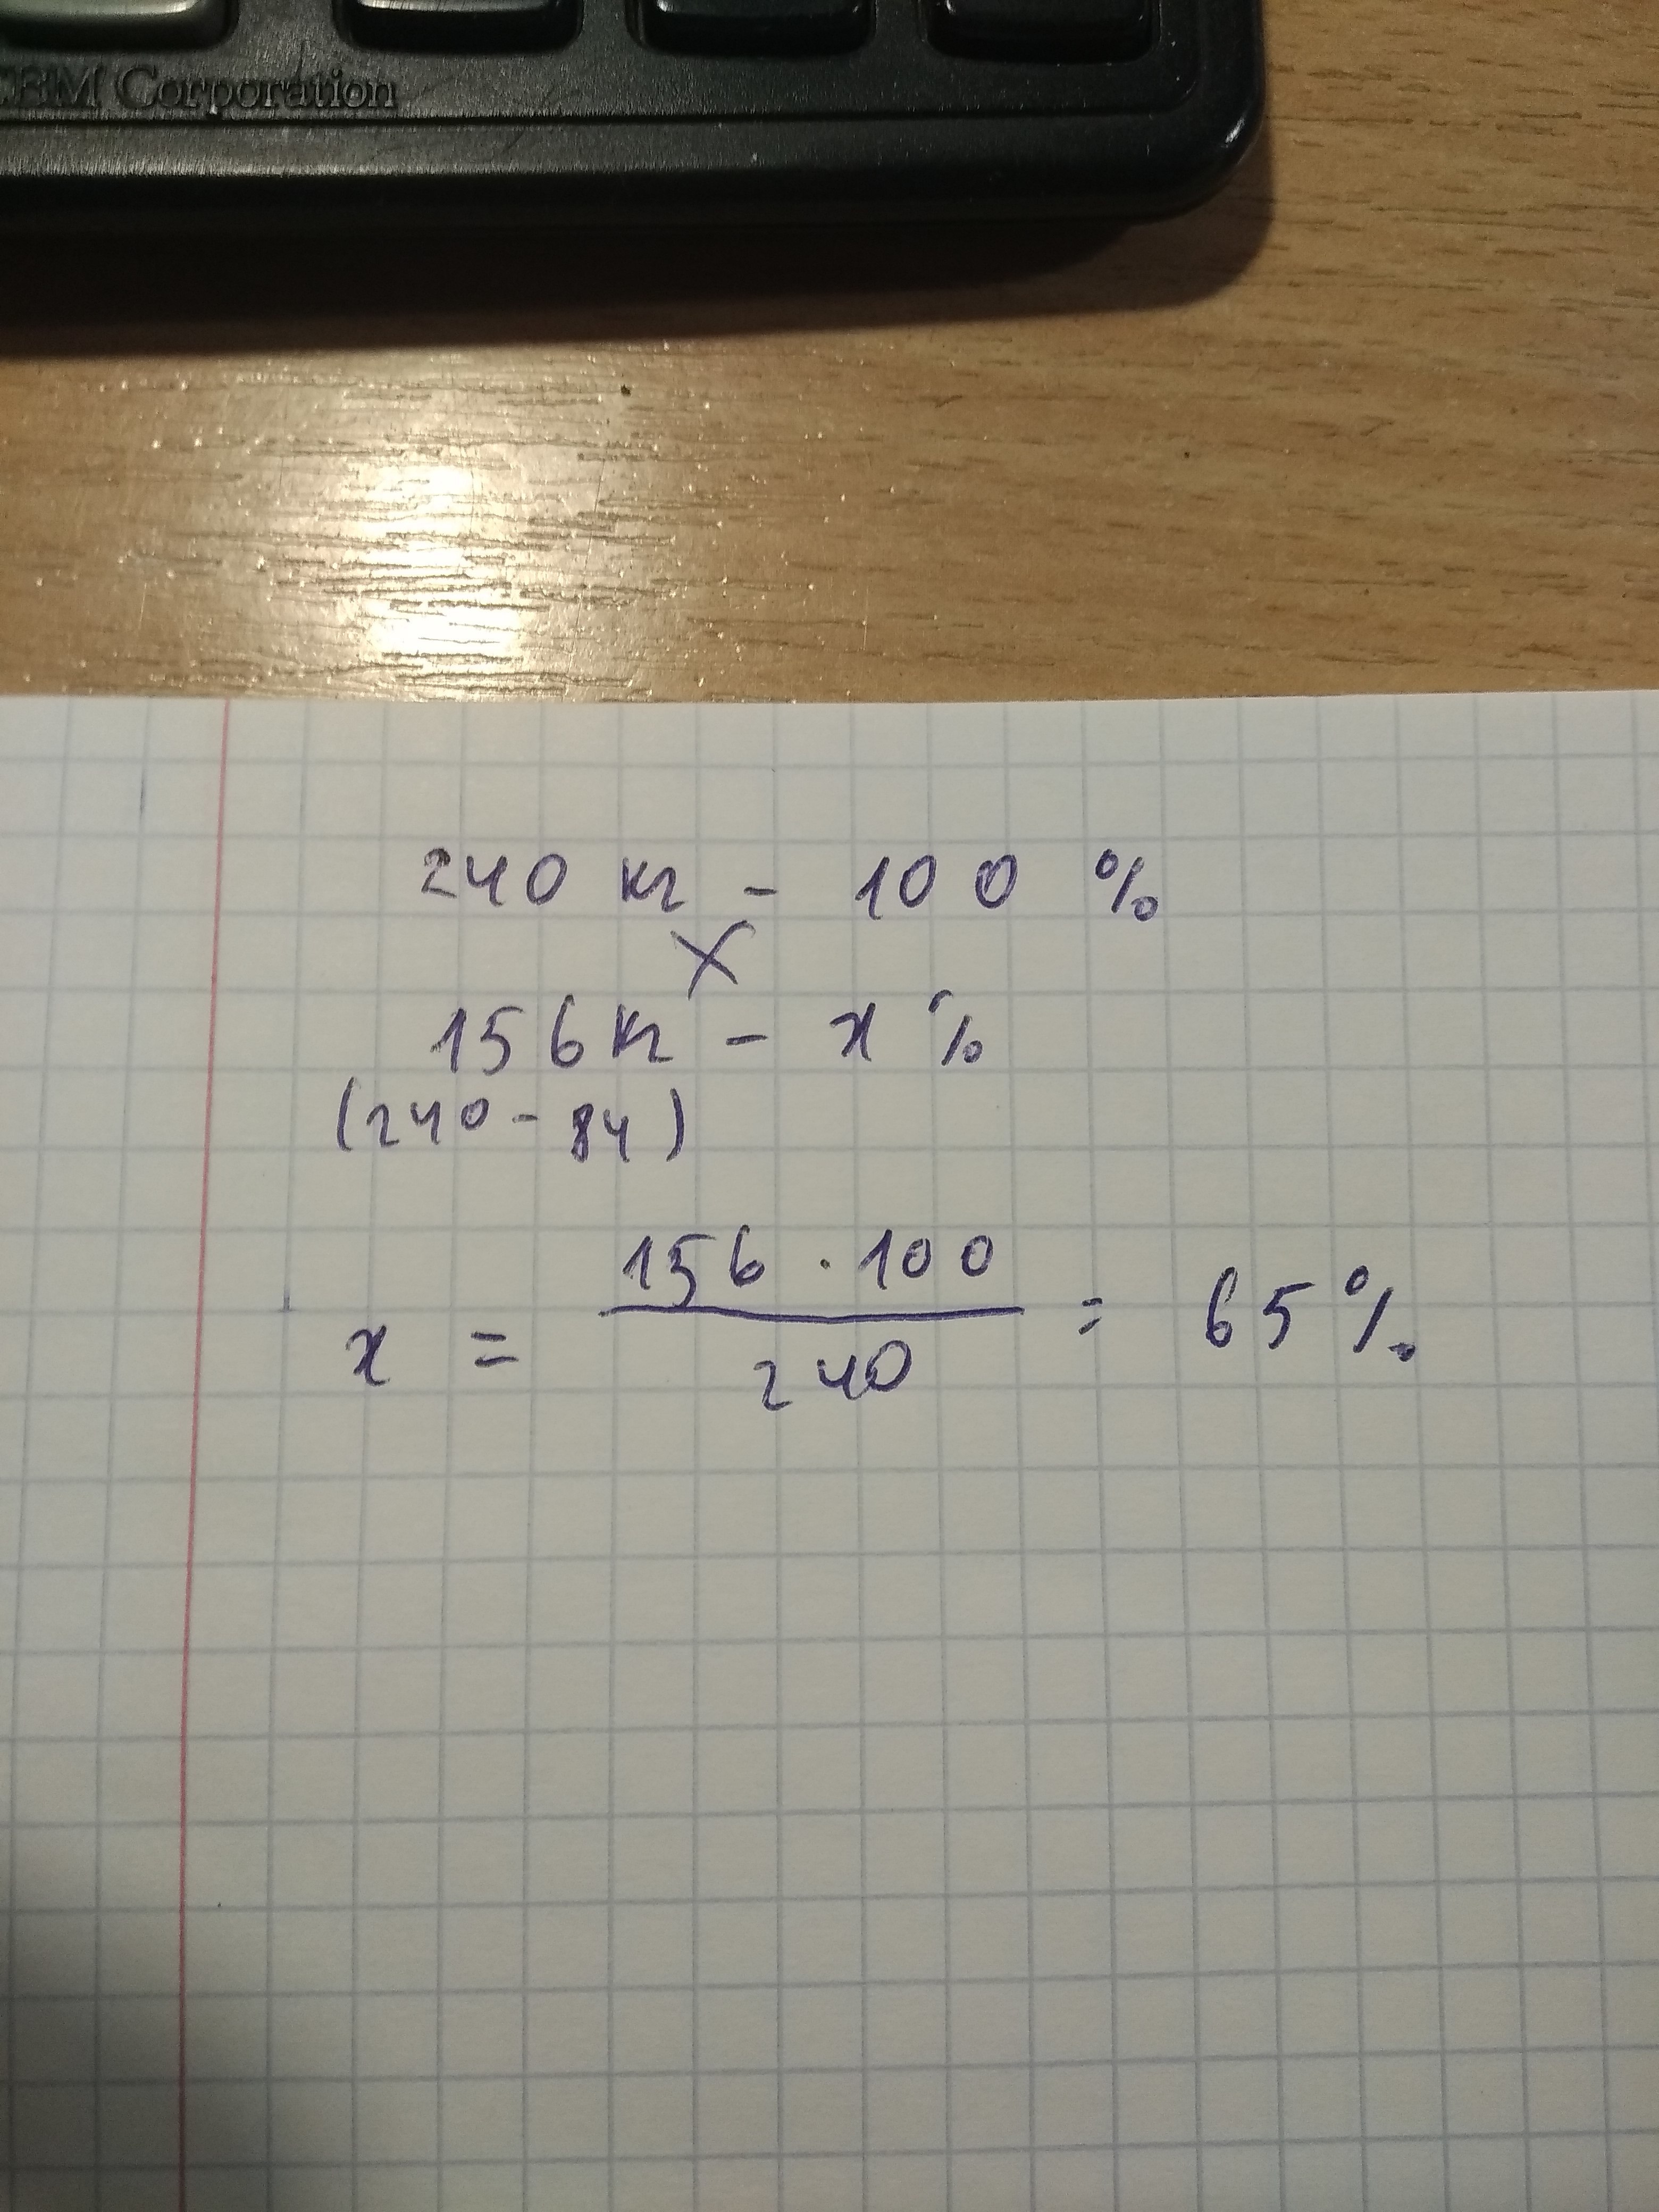 CBM Corporation
240 кг - 100 %
156 кг - x %
(240 - 84)
x = 156 · 100 / 240 = 65%